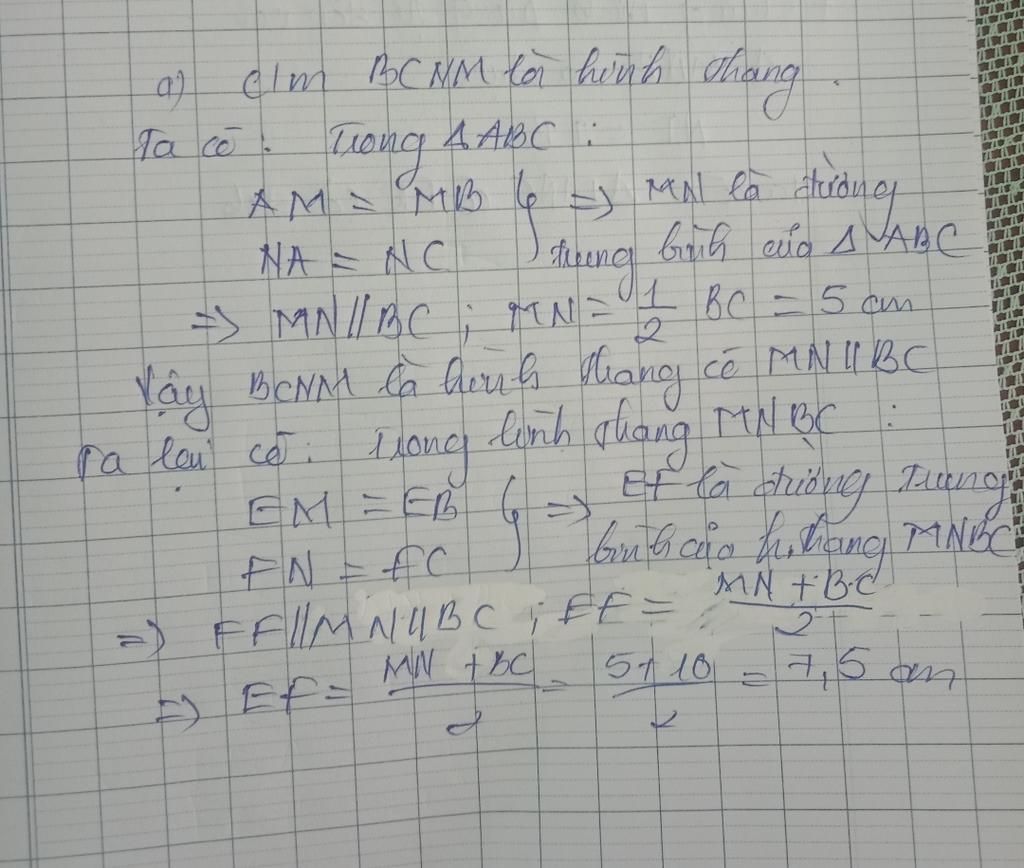 a) c/m BCNM là hình thang.
Ta có: Trong Δ ABC :
AM = MB } => MN là đường
NA = NC trung bình của Δ ABC
=> MN // BC ; MN = 1/2 BC = 5 cm
Vậy BCNM là hình thang có MN // BC
Ta lại có: Trong hình thang MNBC :
EM = EB } => EF là đường trung
FN = FC bình của h.thang MNBC
=> EF // MN // BC ; EF = (MN + BC)/2
=> EF = (MN + BC)/2 = (5+10)/2 = 7,5 cm